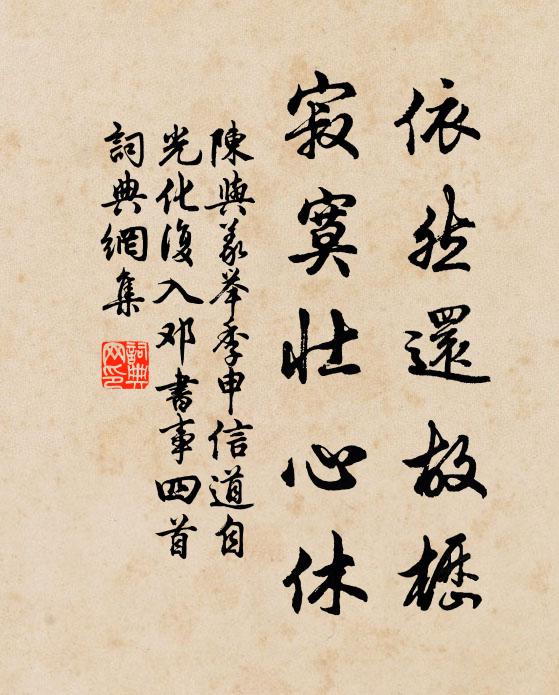 依然還故櫪
寂寞壯心休
陳與義舉季申信道自
光化復入邓書事四首
詞典網集
詞典網印